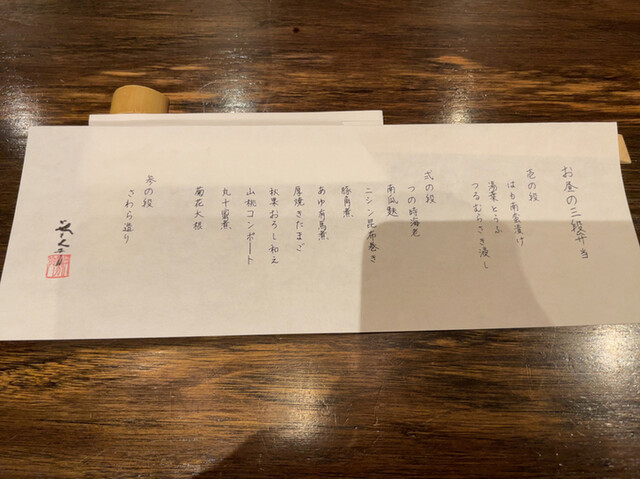 お昼の三段弁当
壱の段
はも南蛮漬け
湯葉とうふ
つるむらさき浸し
弍の段
つの時海老
南瓜麩
ニシン昆布巻き
豚角煮
あゆ有馬煮
厚焼きたまご
秋果おろし和え
山桃コンポート
丸十蜜煮
菊花大根
冬の段
さわら造り